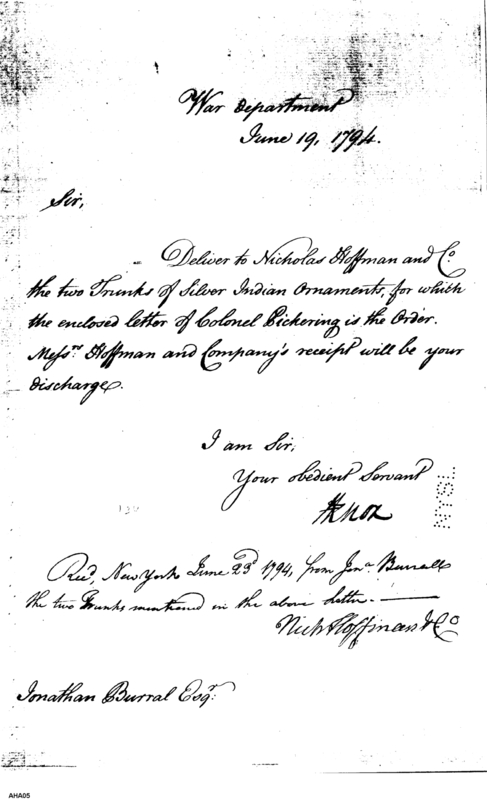 War Department
June 19, 1794.
Sir,
Deliver to Nicholas Hoffman and Co
the two Trunks of Silver Indian Ornaments, for which
the enclosed letter of Colonel Pickering is the Order.
Messrs Hoffman and Company's receipt will be your
discharge.
I am Sir,
Your obedient Servant
HKnox
NYSL
Recd, New York June 23d 1794, from Jona. Burrall
the two Trunks mentioned in the above letter.
Nich Hoffman & Co
Jonathan Burral Esqr.
AHA05